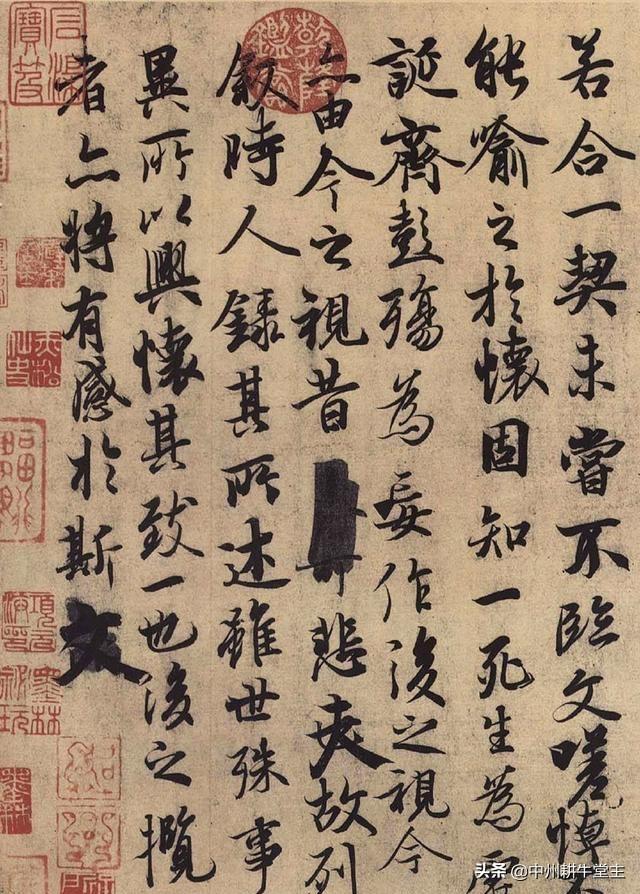 若合一契未嘗不臨文嗟悼
能喻之於懷固知一死生為虛
誕齊彭殤為妄作後之視今
亦由今之視昔悲夫故列
敘時人錄其所述雖世殊事
異所以興懷其致一也後之攬
者亦將有感於斯文
头条 @中州耕牛堂主